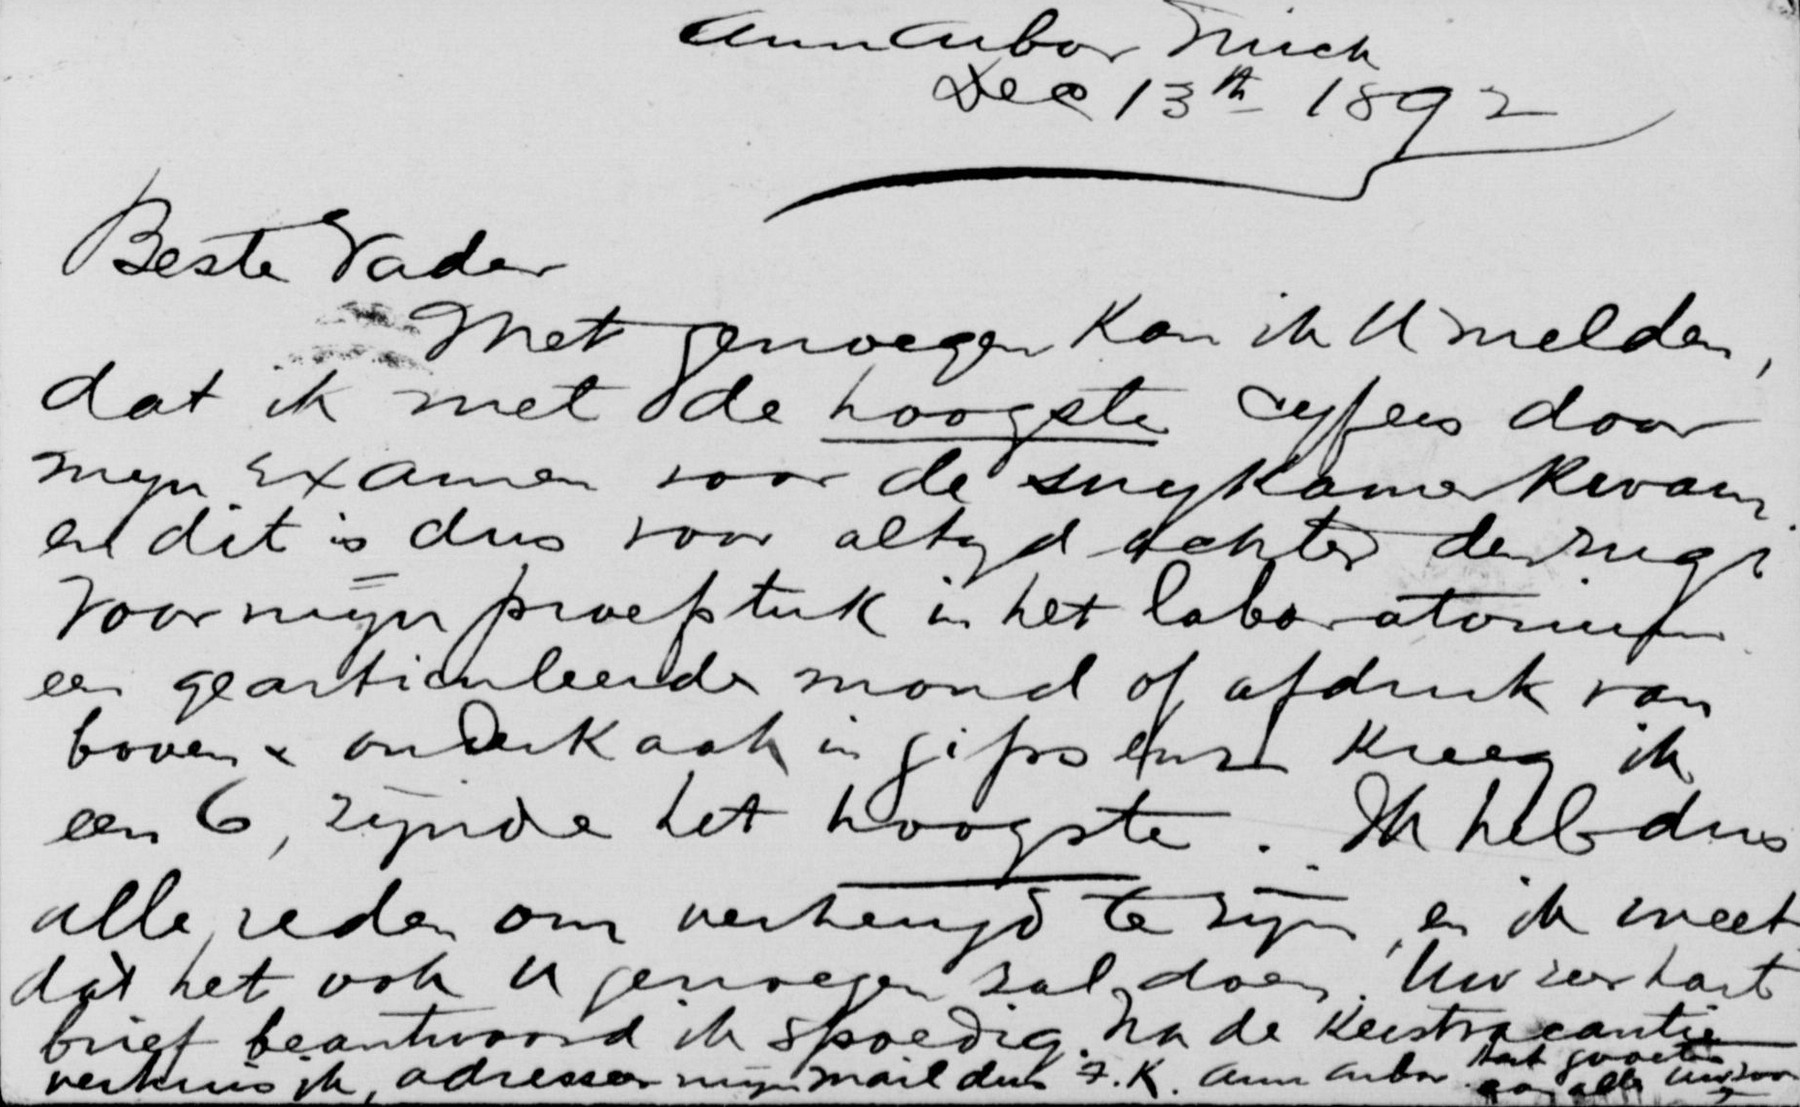 Ann Arbor Mich
Dec 13th 1892
Beste Vader
Met genoegen kan ik U melden,
dat ik met de hoogste cyfers door
myn Examen voor de snykamer kwam
en dit is dus voor altyd achter den rug.
Voor myn proefstuk in het laboratorium
een gearticuleerde mond of afdruk van
boven & onderkaak in gips enz kreeg ik
een 6, zynde het hoogste. Ik heb dus
alle reden om verheugd te zyn, en ik weet
dat het ook U genoegen zal doen. Uw zeer
brief beantwoord ik spoedig. Na de Kerstvacantie
verhuis ik, adresseer myn mail dus F.K. Ann Arbor
groeten
aan alle Uw zoon